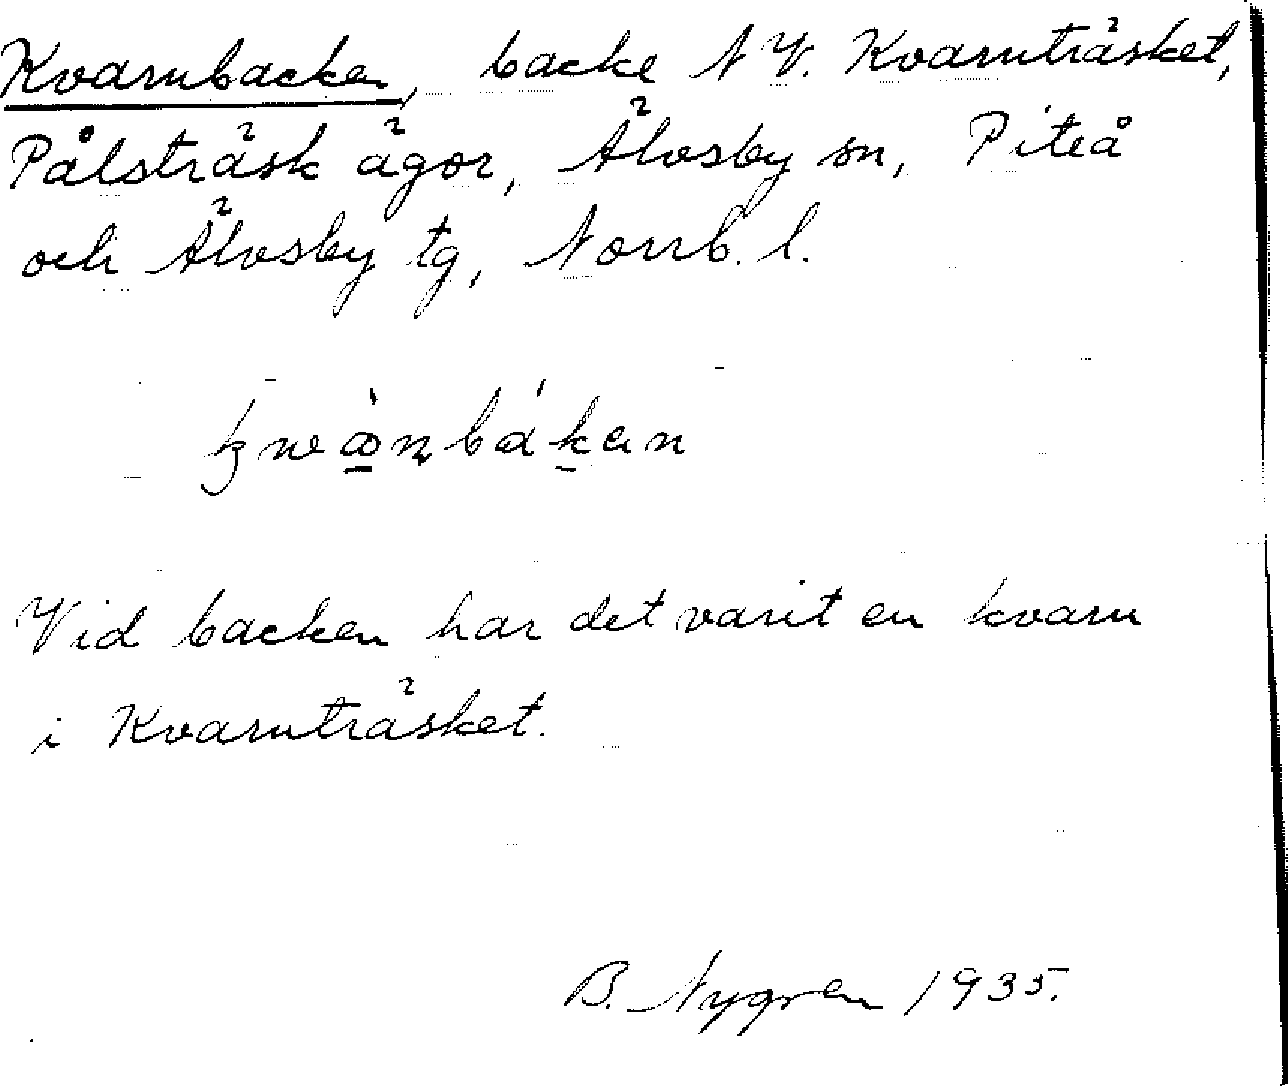 Kvarnbacken, backe N V. Kvarnträsket,
Pålsträsk ägor, Älvsby sn, Piteå
och Älvsby tg, Norrb. l.
Vid backen har det varit en kvarn
i Kvarnträsket.
B. Nygren 1935.